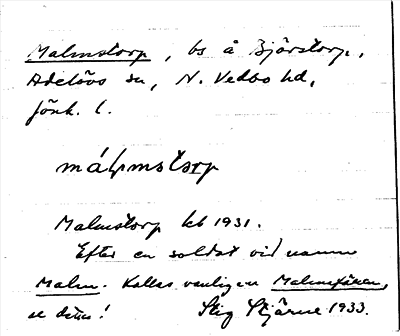 Malmstorp, bs å Björstorp,
Adelövs sn, N. Vedbo hd,
Jönk. l.
málmstorp
Malmstorp kb 1931.
Efter en soldat vid namn
Malm. Kallas vanligen Malmafällan,
se detta! Stig Stjärne 1933.